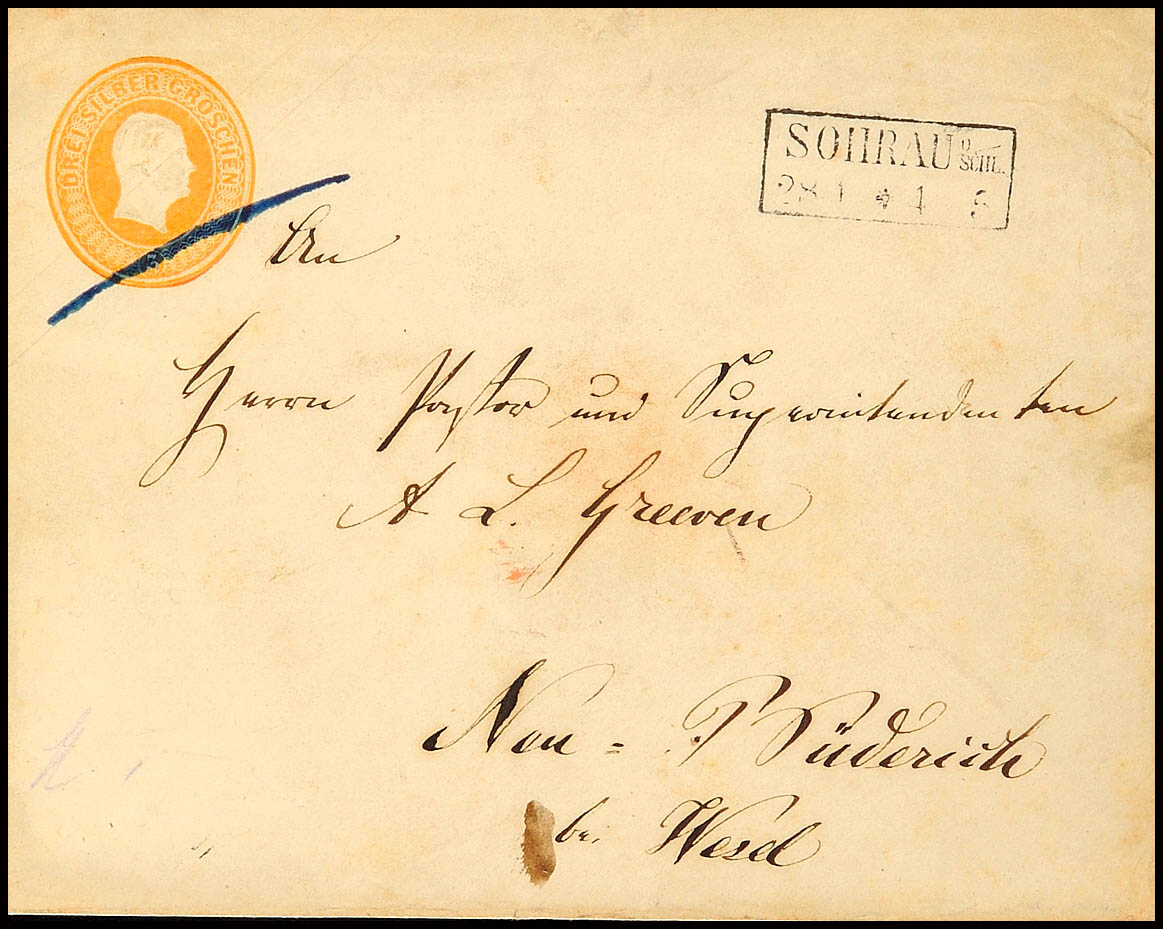 DREI SILBER GROSCHEN
3
SOHRAU O/SCHL.
28 1 * 4 5
An
Herrn Pastor und Superintendenten
A L. Greeven
Neu = Büderich
bei Wesel